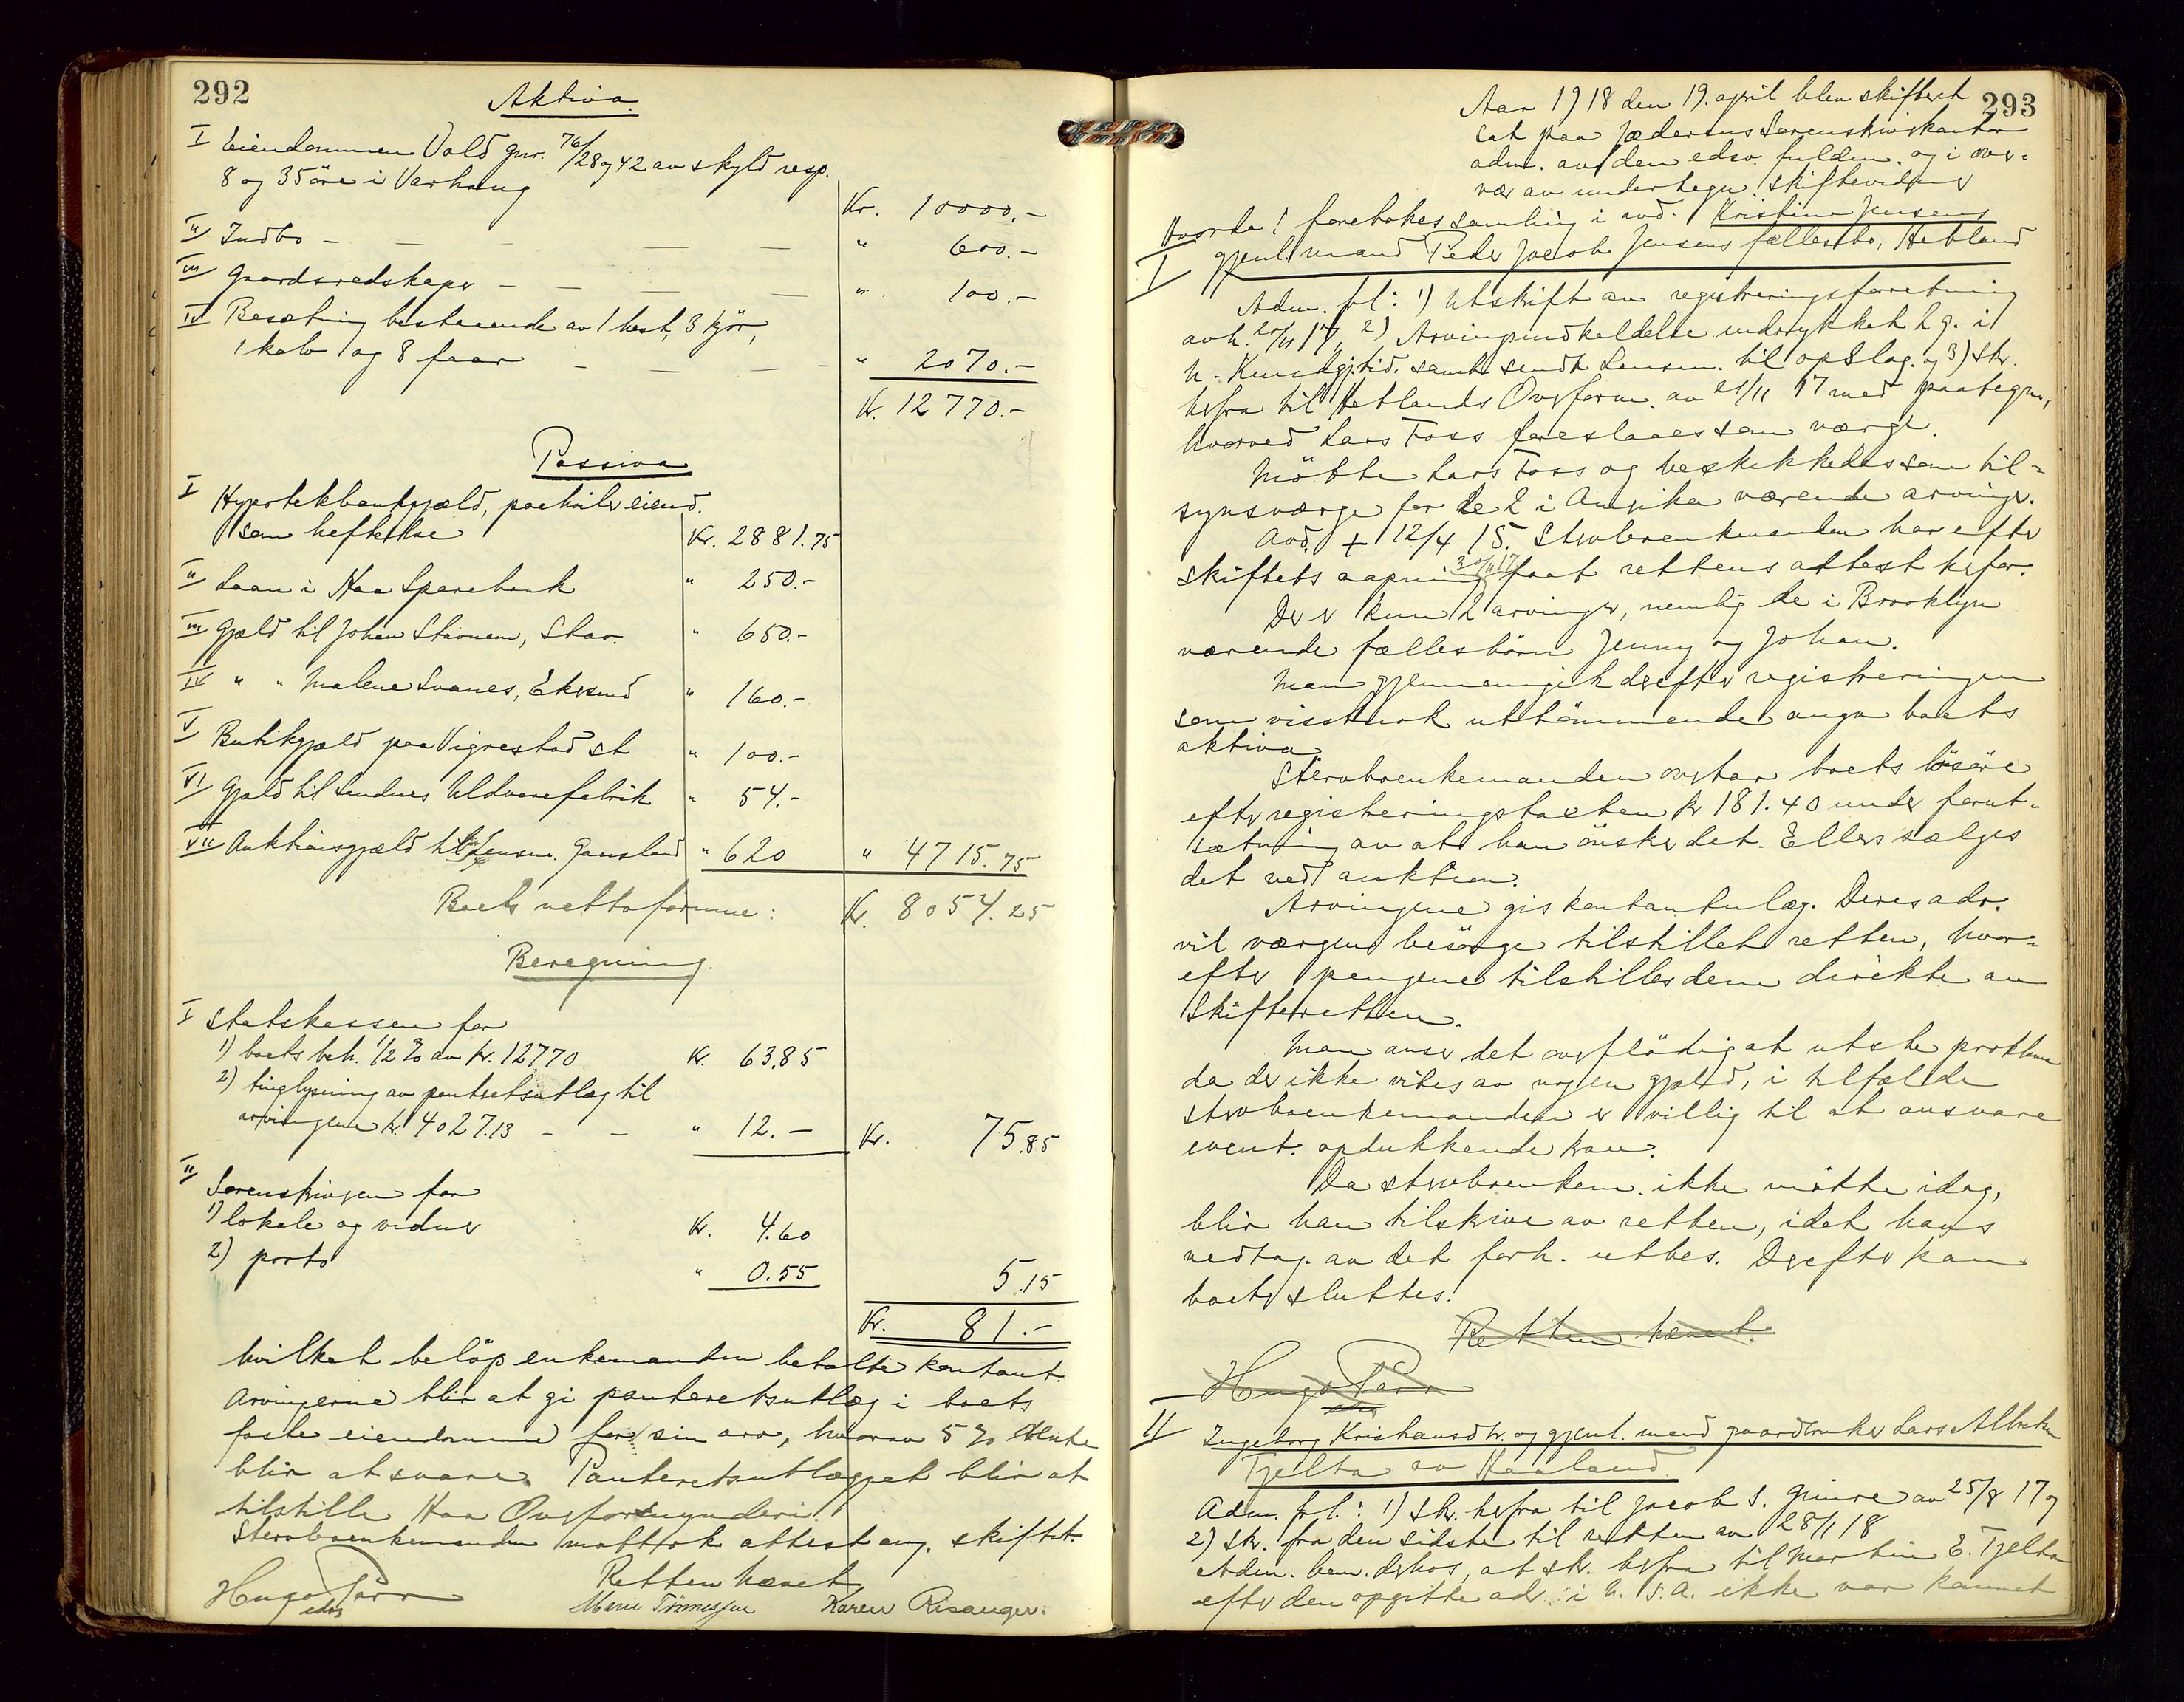 292
Aktiva
I Eiendommen Vold gnr. 76/28 og 42 av skyld resp.
8 og 35 øre i Varhaug Kr. 10000.-
II Indbo - " 600.-
III Gaardsredskaper - " 100.-
IV Besætning bestaaende av 1 hest, 3 kjör,
1 kalv og 8 faar - " 2070.-
Kr. 12770.-
Passiva
I Hypotekbankgjæld, paahviler eiend.
som heftelse Kr. 2881.75
II Laan i Haa Sparebank " 250.-
III Gjæld til Johan Stavnem, Stav. " 650.-
IV " " Malene Svanes, Ekersund " 160.-
V Butikgjæld paa Vigrestad st " 100.-
VI Gjæld til Sandnes Uldvarefabrik " 54.-
VII Auktionsgjæld til Lensm. Gausland " 620 " 4715.75
Boets nettoformue: Kr. 8054.25
Beregning.
I Statskassen for
1) boets beh. 1/2 % av kr. 12770 Kr. 63.85
2) tinglysning av panteretsutlæg til
arvingene kr. 4027.13 - - " 12.- Kr. 75.85
II Sorenskriveren for
1) lokale og vidner Kr. 4.60
2) porto " 0.55 5.15
Kr. 81.-
hvilket beløp enkemanden betalte kontant.
Arvingerne blir at gi panteretsutlæg i boets
faste eiendomme for sin arv, hvorav 5 % rente
blir at svare. Panteretsutlægget blir at
tilstille Haa Overformynderi.
Stervboenkemanden mottok attest ang. skiftet.
Retten hævet
Hugo Parr
edsv
Marie Tönnessen Karen Risanger.
293
Aar 1918 den 19. april blev skifteret
sat paa Jæderens Sorenskriverkontor
adm. av den edsv. fuldm. og i over-
vær av undertegn. skiftevidner
Hvorda! foretokes samling i avd. Kristine Jensens
I gjenl. mand Peder Jacob Jensens fællesbo, Hetland
Adm. frl.: 1) Utskrift av registreringsforretning
avh. 20/11 17, 2) Arvingindkaldelse indrykket 2 g. i
N. Kundgj.tid. samt sendt Lensm. til opslag. og 3) Skr.
herfra til Hetlands Overform. av 21/11 17 med paategn.,
hvorved Lars Foss foreslaaes som værge.
Mötte Lars Foss og beskikkedes som til-
synsværge for de 2 i Amerika værende arvinger.
Avd. + 12/4 15. Stervboenkemanden har efter
skiftets aapning 30/11 17 faat rettens attest herfor.
Der er kun 2 arvinger, nemlig de i Brooklyn
værende fællesbörn Jenny og Johan.
Man gjennemgik derefter registreringen
som visstnok uttömmende angir boets
aktiva.
Stervboenkemanden overtar boets lösöre
efter registreringstaksten kr 181.40 under forut-
sætning av at han önsker det. Ellers sælges
det ved auktion.
Arvingene gis kontantutlæg. Deres adr.
vil værgen besörge tilstillet retten, hvor-
efter pengene tilstilles dem direkte av
Skifteretten.
Man anser det overflödig at utste proklama
da der ikke vites av nogen gjæld, i tilfælde
stervboenkemanden er villig til at ansvare
event. opdukkende krav.
Da stervboenkem. ikke mötte idag,
blir han tilskrive av retten, idet hans
vedtag. av det forh. utbes. Derefter kan
boet sluttes.
Retten hævet.
Hugo Parr
edsv
II Ingeborg Kristiansdtr. og gjenl. mand gaardbruker Lars Albretsen
Tjelta av Haaland.
Adm. frl.: 1) Skr. herfra til Jacob S. Grude av 25/8 17 og
2) Skr. fra den sidste til retten av 28/1 18
Adm. bem. derhos, at skr. herfra til Martin E. Tjelta
efter den opgitte adr. i U.S.A. ikke var kommet